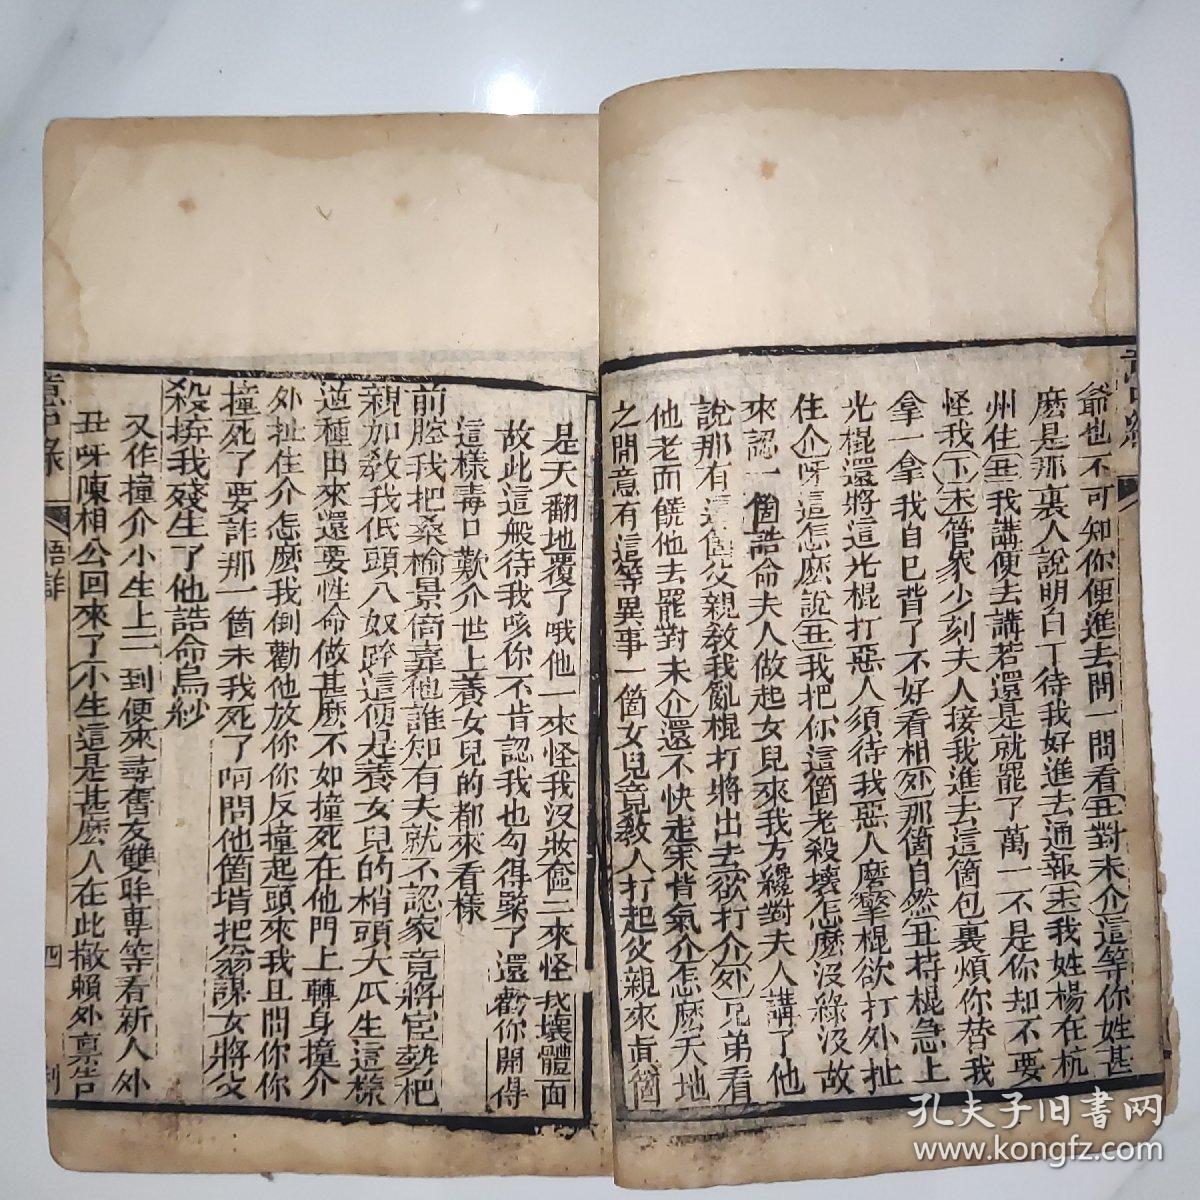 爺也不可知你便進去問一問看丑對未介這等你姓甚
麽是那裏人說明白丁待我好進去通報末我姓楊在杭
州住丑我講便去講若還是就罷了萬一不是你却不要
怪我下末管家少刻夫人接我進去這箇包裹煩你替我
拿一拿我自已背了不好看相外那箇自然丑持棍急上
光棍還將這光棍打惡人須待我惡人麽拿棍欲打外扯
住介呀這怎麽說丑我把你這箇老殺壞怎麽沒綠沒故
來認一箇誥命夫人做起女兒來我方纔對夫人講了他
說那有這僥父親教我亂棍打將出去欲打介外兄弟看
他老而饒他去罷對未介還不快走末背氣介怎麽天地
之間意有這等異事一箇女兒竟教人打起父親來眞箇
是天翻地覆了哦他一來怪我沒妝奩二來怪我壞體面
故此這般待我咳你不肯認我也勾得緊了還勸你開得
這樣毒口歎介世上養女兒的都來看樣
前腔我把桑榆景倚靠他誰知有夫就不認家竟將宦勢把
親加教我低頭八奴跸這便是養女兒的梢頭大瓜生這樣
逆種出來還要性命做甚麽不如撞死在他門上轉身撞介
外扯住介怎麽我倒勸他放你你反撞起頭來我且問你你
撞死了要詐那一箇未我死了呵問他箇堦把翁謀女將父
殺拚我殘生了他誥命烏紗
又作撞介小生上一到便來尋舊友雙眸專等看新人外
丑呀陳相公回來了小生這是甚麽人在此撒賴外禀告
意中緣
四